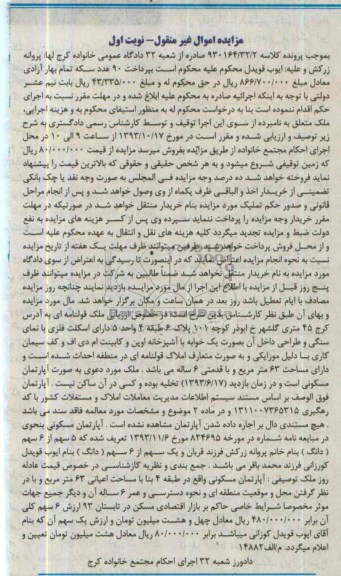 مزایده اموال غیر منقول- نوبت اول
بموجب پرونده کلاسه ۹۳۰۱۶۴/۳۲/۲ صادره از شعبه ۳۲ دادگاه عمومی خانواده کرج لها: پروانه
زرکش و علیه: ایوب قویدل محکوم علیه محکوم است بپرداخت ۹۰ عدد سکه تمام بهار آزادی
معادل مبلغ ۸۶۶/۷۰۰/۰۰۰ ریال در حق محکوم له و مبلغ ۴۳/۳۳۵/۰۰۰ ریال بابت نیم عشر
دولتی با توجه به اینکه اجرائیه صادره به محکوم علیه ابلاغ شده و در مهلت مقرر نسبت به اجرای
حکم اقدام ننموده است بنا به درخواست محکوم له به منظور استیفای محکوم به و هزینه اجرایی،
ملک متعلق به نامبرده از سوی این اجرا توقیف و توسط کارشناس رسمی دادگستری به شرح
زیر توصیف و ارزیابی شده و مقرر است در مورخ ۱۳۹۳/۱۰/۱۷ از ساعت ۹ الی ۱۰ در محل
اجرای احکام مجتمع خانواده از طریق مزایده بفروش میرسد مزایده از قیمت ۸۰/۰۰۰/۰۰۰ ریال
که زمین توقیفی شروع میشود و به هر شخص حقیقی و حقوقی که بالاترین قیمت را پیشنهاد
نماید فروخته خواهد شد ده درصد وجه مزایده فی المجلس به صورت وجه نقد یا چک بانکی
تضمینی از خریدار اخذ و الباقی ظرف یکماه از وی وصول خواهد شد و پس از انجام مراحل
قانونی و صدور حکم تملیک مورد مزایده بنام خریدار منتقل خواهد شد در صورتیکه در مهلت
مقرر خریدار وجه مزایده را پرداخت ننماید سپرده وی پس از کسر هزینه های مزایده به نفع
دولت ضبط و مزایده تجدید میگردد کلیه هزینه های نقل و انتقال به عهده محکوم علیه است
و از محل فروش پرداخت خواهد شد طرفین میتوانند ظرف مهلت یک هفته از تاریخ مزایده
نسبت به نحوه انجام مزایده اعتراض نمایند که در اینصورت تا رسیدگی به اعتراض از سوی دادگاه
مورد مزایده به نام خریدار منتقل نخواهد شد ضمنا طالبین به شرکت در مزایده میتوانند ظرف
پنج روز قبل از مزایده با اطلاع این اجرا از مال مورد مزایده بازدید نمایند چنانچه روز مزایده
مصادف با ایام تعطیل باشد روز بعد در همان ساعت و مکان برگزار خواهد شد. مال مورد مزایده
و بهای آن طبق نظر کارشناس بدین شرح است: در خصوص ارزیابی ملک قولنامه ای به آدرس
کرج ۴۵ متری گلشهر خ ابوذر کوچه ۱۰۱ پلاک ۶ طبقه ۴ واحد ۵ دارای اسکلت فلزی با نمای
سنگی و طراحی داخل آن بصورت یک خوابه با آشپزخانه اوپن و کابینت ام دی اف و کف سیمان
کاری بـا دلیل موزاییکی و به صورت متعارف املاک قولنامه ای در منطقه احداث شده اسـت و
دارای مساحت ۶۳ متر مربع و با قدمتی ۶ ساله می باشد . ملک مورد دعوی به صورت آپارتمان
مسکونی است و در زمان بازدید (۱۳۹۳/۶/۱۷) تخلیه بوده و کسی در آن ساکن نیست . آپارتمان
فوق الوصف بر اساس مستند سیستم اطلاعات مدیریت معاملات املاک و مستغلات کشور با کد
رهگیری ۱۳۱۱۰۰۷۳۶۵۳۱۵ و در ماده ۲ موضوع و مشخصات مورد معامله فاقد سند می باشد
. هیچ مستندی دال بر اجاره داده شدن آپارتمان مشاهده نشده است . آپارتمان مسکونی بنحوی
در مبایعه نامه شماره در مورخه ۸۲۴۶۹۵ مورخ ۱۳۹۳/۱/۶ تعریف شده که ۵ سهم از ۶ سهم
( دانگ ) بنام خانم پروانه زرکش فرزند قربان و یک سهم از ۶ سهم ( دانگ ) بنام ایوب قویدل
کورزانی فرزند محمد باقر می باشد . جمع بندی و نظریه کارشناسی در خصوص قیمت عادله
روز ملک توصیفی : آپارتمان مسکونی واقع در طبقه ۴ بنا با مساحت اعیانی ۶۳ متر مربع و با در
نظر گرفتن محل و موقعیت منطقه ای و نحوه دسترسی و عمر ۶ ساله آن و دیگر جمیع جهات
موثر مخصوصا شرایط خاصی حاکم بر بازار اقتصادی مسکن در تابستان ۹۳ ارزش ۶ سهم کلی
آن برابر ۴۸۰/۰۰۰/۰۰۰ ریال معادل چهل و هشت میلیون تومان و ارزش یک سهم آن که بنام
آقای ایوب قویدل کورزانی میباشد برابر ۸۰/۰۰۰/۰۰۰ ریال معادل هشت میلیون تومان تعیین و
اعلام میگردد. م/الف۱۴۸۸۲
دادورز شعبه ۳۲ اجرای احکام مجتمع خانواده کرج